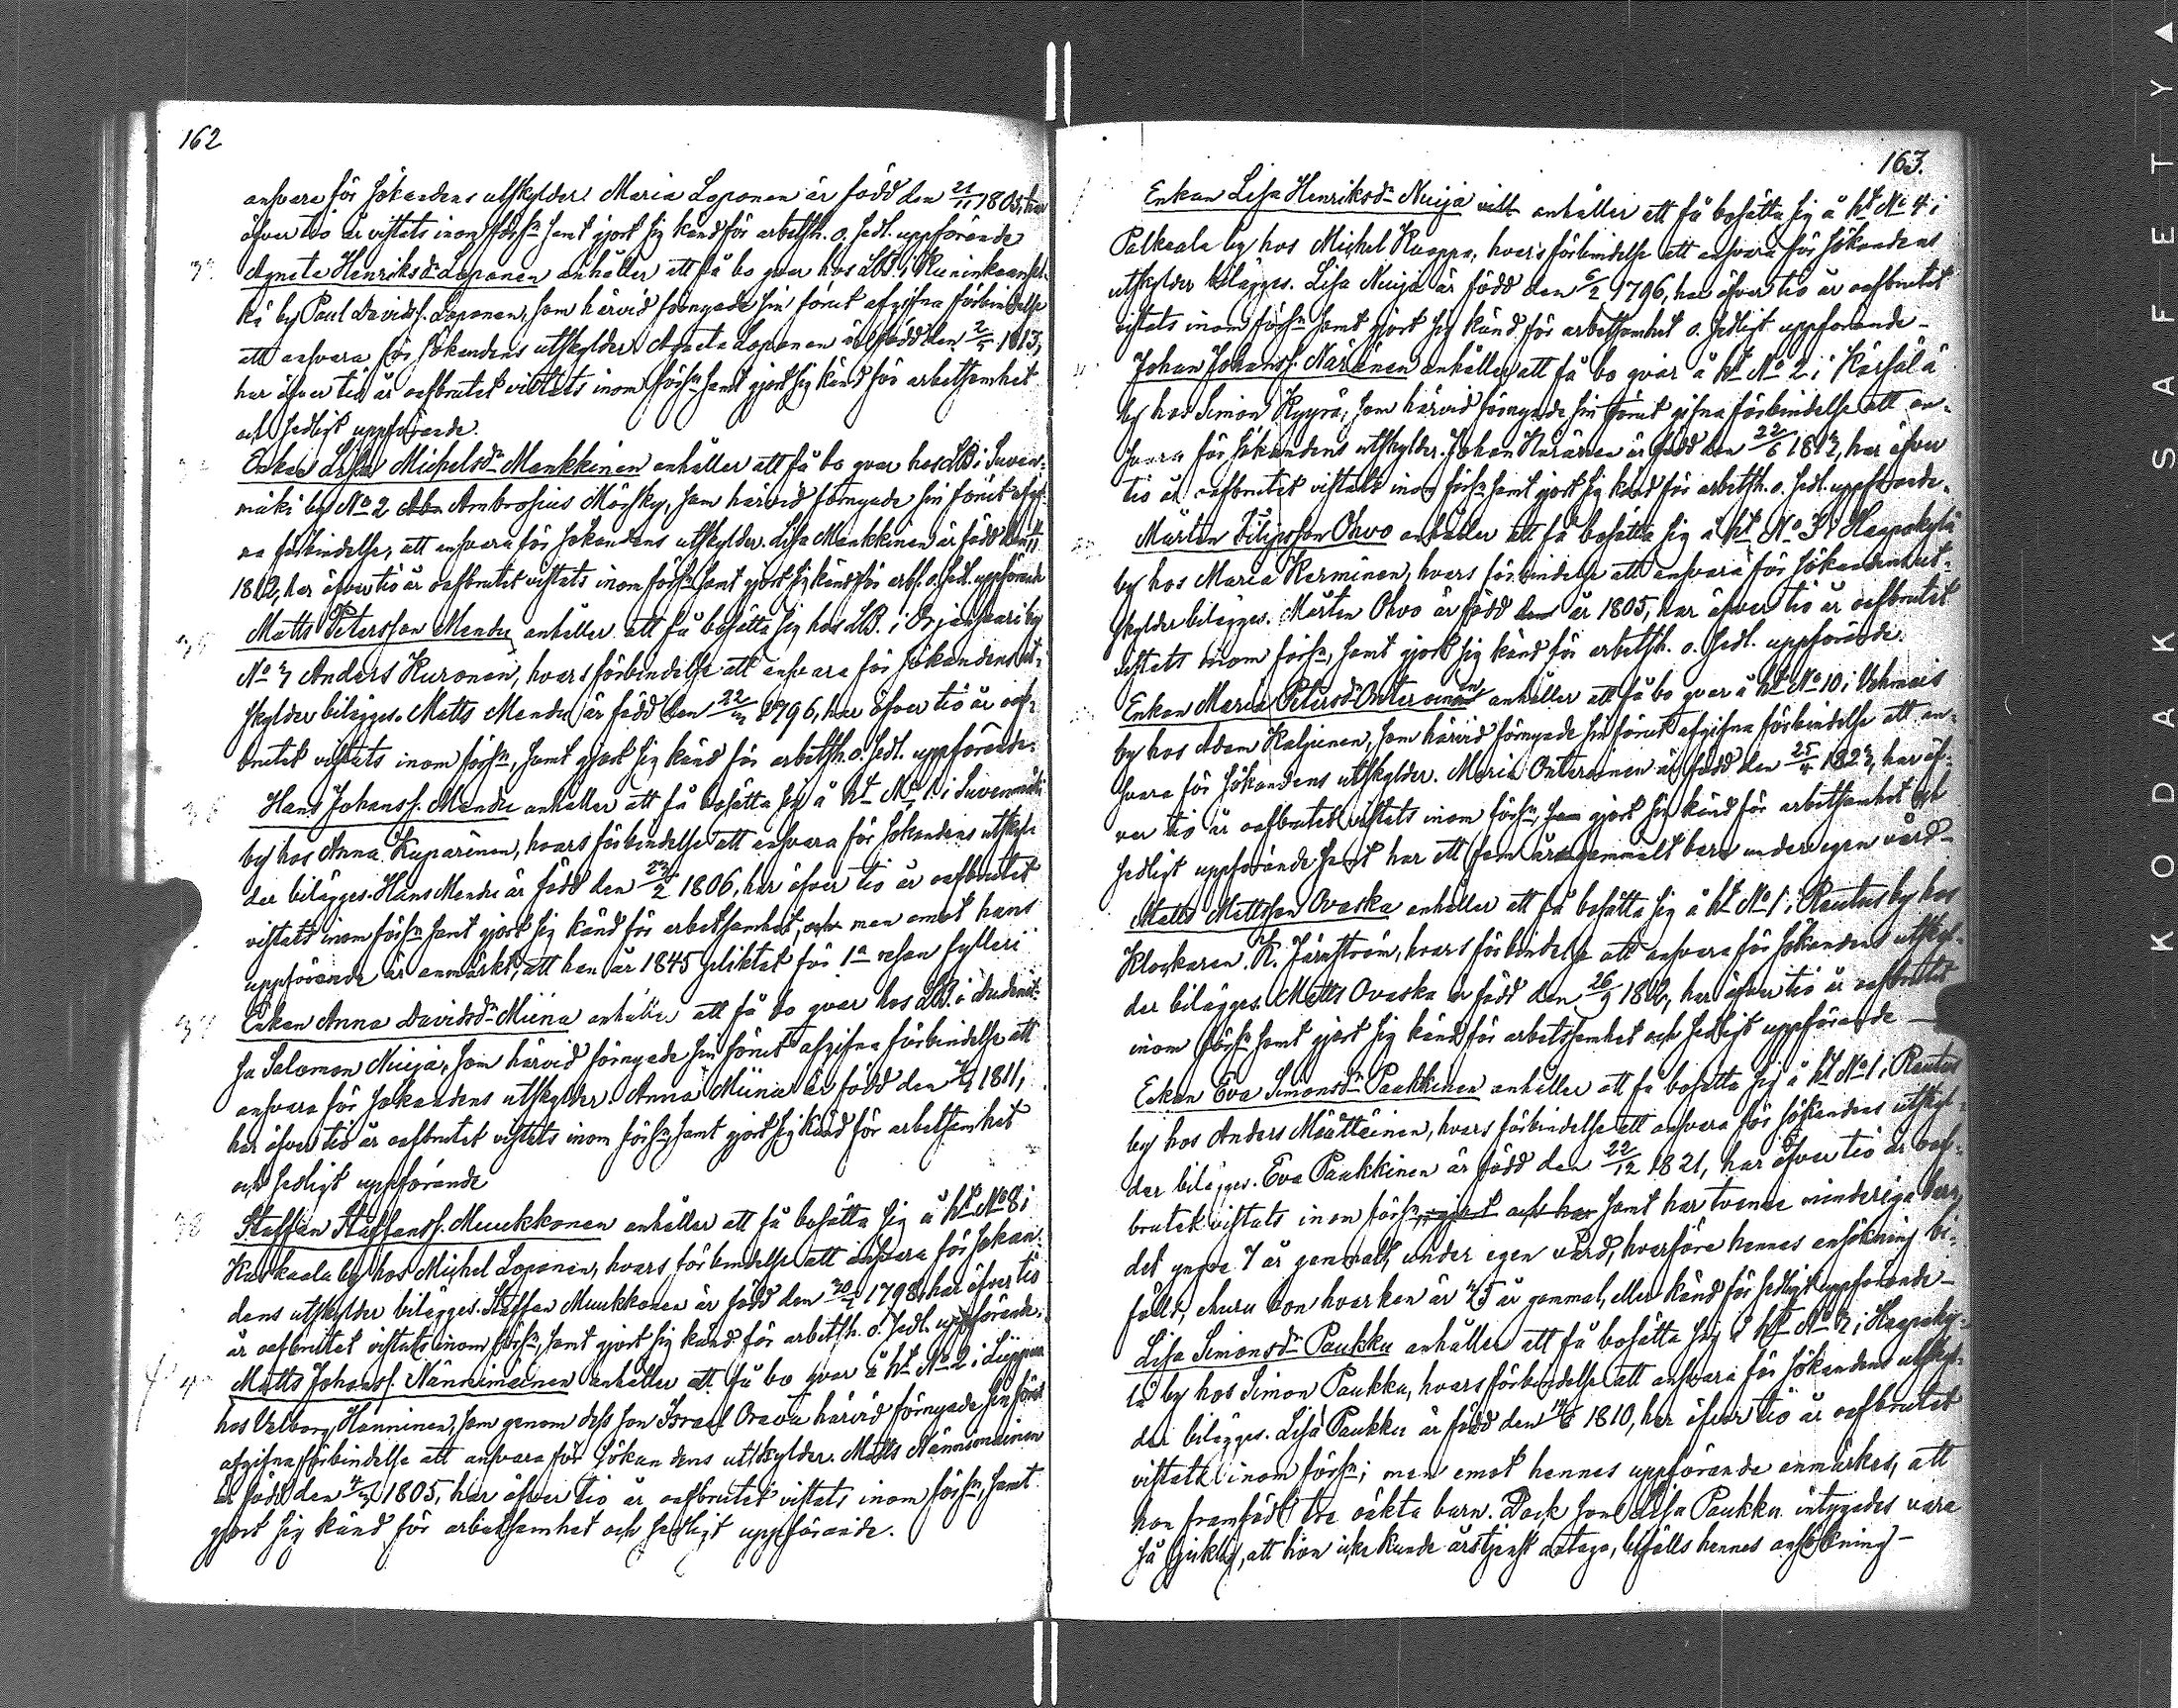 162
ansvara för sökandens utskylder. Maria Loponen är född den 21/11 1805, har
öfver tio år vistats inom förs:n samt gjort sig känd för arbetsh. o. sedl. uppförande
Agneta Henriksdr Loponen anhåller att få bo qvar hos LB. i Kuninkaanris-
ki by Paul Davidss. Loponen, som härvid förnyade sin förut afgifna förbindelse
att ansvara för sökandens utskylder. Agneta Loponen är född den 2/5 1813,
har öfver tio år oafbrutet vistats inom förs:n samt gjort sig känd för arbetsamhet
och sedligt uppförande.
Enkan Lisa Michelsdr Mankkinen anhåller att få bo qvar hos LB i Suven-
mäki by No 2 Ambrosius Mösky, som härvid förnyade sin förut afgif-
na förbindelse, att ansvara för sökandens utskylder. Lisa Mankkinen är född
1812, har öfver tio år oafbrutet vistats inom förs:n samt gjort sig känd för arbs. o. sedl. uppförande
Matts Petersson Mendu anhåller att få bosätta sig hos LB. i Orjansaari by
No 3 Anders Kuronen, hvars förbindelse att ansvara för sökandens ut-
skylder bilägges. Matts Mendu är född den 22/3 1796, har öfver tio år oaf-
brutet vistats inom förs:n, samt gjort sig känd för arbetsh. o. sedl. uppförande.
Hans Johanss. Mendu anhåller att få bosätta sig å ht No 1 i Suvenmäki
by hos Anna Kuparinen, hvars förbindelse att ansvara för sökandens utskyl-
der bilägges. Hans Mendu är född den 23/2 1806, har öfver tio år oafbrutet
vistats inom förs:n samt gjort sig känd för arbetsamhet, och men emot hans
uppförande är anmärkt, att han år 1845 pliktat för 1a resan fylleri
Enkan Anna Davidsdr Miina anhåller att få bo qvar hos LB. i
sa Salomon Nuija, som härvid förnyade sin förut afgifna förbindelse att
ansvara för sökandens utskylder. Anna Miina är född den 1811,
har öfver tio år oafbrutet vistats inom förs:n, samt gjort sig känd för arbetsamhet
och sedligt uppförande
38 Staffan Staffanss. Muukkonen anhåller att få bosätta sig å ht No 8 i
Kuskaala by hos Michel Loponen, hvars förbindelse att ansvara för sökan-
dens utskylder bilägges. Staffan Muukkonen är född den 30/7 1798, har öfver tio
år oafbrutet vistats inom förs:n, samt gjort sig känd för arbetsh. o. sedl. uppförande.
Matts Johanss. Nännimäinen anhåller att få bo qvar å ht No 2 i Liippua
hos Valborg Hänninen, som genom dess son Israel Orava härvid förnyade sin förut
afgifna förbindelse att ansvara för sökandens utskylder. Matts Nännimäinen
är född den 4/3 1805, har öfver tio år oafbrutet vistats inom förs:n, samt
gjort sig känd för arbetsamhet och sedligt uppförande.
163.
Enkan Lisa Henriksdr Nuija vill anhåller att få bosätta sig å ht No 4 i
Palkeala by hos Michel Kaappa, hvars förbindelse att ansvara för sökandens
utskylder bilägges. Lisa Nuija är född den 5/2 1796, har öfver tio år oafbrutet
vistats inom förs:n samt gjort sig känd för arbetsamhet o. sedligt uppförande –
Johan Johanss. Näränen anhåller att få bo qvar å ht No 2 i Kärsälä
by hos Simon Kyyrä, som härvid förnyade sin förut gifna förbindelse att an-
svara för sökandens utskylder. Johan Näränen är född den 22/6 1813, har öfver
tio år oafbrutet vistats inom förs:n samt gjort sig känd för arbetsh. o. sedl. uppförande.
Mårten Filipsson Ohvo anhåller att få bosätta sig å ht No 3 i Haapakylä
by hos Maria Karminen, hvars förbindelse att ansvara för sökandens ut-
skylder bilägges. Mårten Ohvo är född den år 1805, har öfver tio år oafbrutet
vistats inom förs:n, samt gjort sig känd för arbetsh. o. sedl. uppförande.
Enkan Maria Petersdr Onteroinen anhåller att få bo qvar å ht No 10 i Vehmais
by hos Adam Kaljunen, som härvid förnyade sin förut afgifna förbindelse att an-
svara för sökandens utskylder. Maria Onteroinen är född den 25/4 1823, har öf-
ver tio år oafbrutet vistats inom förs:n, sam gjort sig känd för arbetsamhet och
sedligt uppförande samt har ett fem år gammalt barn under egen vård –
Matts Mattsson Ovaska anhåller att få bosätta sig å ht No 1 i Rautus by hos
Klockaren K. Järnström, hvars förbindelse att ansvara för sökandens utskyl-
der bilägges. Matts Ovaska är född den 26/9 1812, har öfver tio år oafbrutet
inom förs:n samt gjort sig känd för arbetsamhet och sedligt uppförande —
Enkan Eva Simonsdr Paukkinen anhåller att få bosätta sig å ht No 1 i Rautus
by hos Anders Määttäinen, hvars förbindelse att ansvara för sökandens utskyl-
der bilägges. Eva Paukkinen är född den 22/12 1821, har öfver tio år oaf-
brutet vistats inom förs:n, gjort och har samt har tvenne minderiga barn
det yngre 7 år gammalt, under egen vård, hvarföre hennes ansökning bi-
fälls, ehuru hon hvarken är 45 år gammal, eller känd för sedligt uppförande –
Lisa Simonsdr Paukku anhåller att få bosätta sig å ht No 2 i Haapaky-
lä by hos Simon Paukku, hvars förbindelse att ansvara för sökandens utskyl-
der bilägges. Lisa Paukku är född den 14/6 1810, har öfver tio år oafbrutet
vistats inom förs:n; men emot hennes uppförande anmärkes, att
hon framfödt tre oäkta barn. Dock som Lisa Paukku intygades vara
så sjuklig, att hon icke kunde årstjenst antaga, bifalls hennes ansökning –
KODAK SAFETY